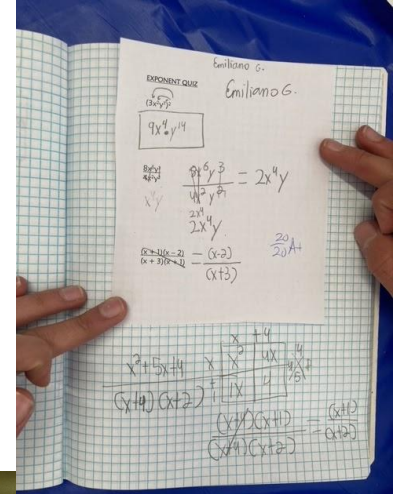 Emiliano G.
EXPONENT QUIZ
Emiliano G.
(3x²y⁷)²
9x⁴·y¹⁴
8x⁶y³
4x²y² = 2x⁴y
x⁴y
2x⁴
2x⁴y
(x+1)(x-2)
(x+3)(x+1) = (x-2)
(x+3)
20
20 A+
x +4
x²+5x+4 x x² 4x
(x+4)(x+2) +1 1x 4
(x+4)(x+1) = (x+1)
(x+4)(x+2) (x+2)